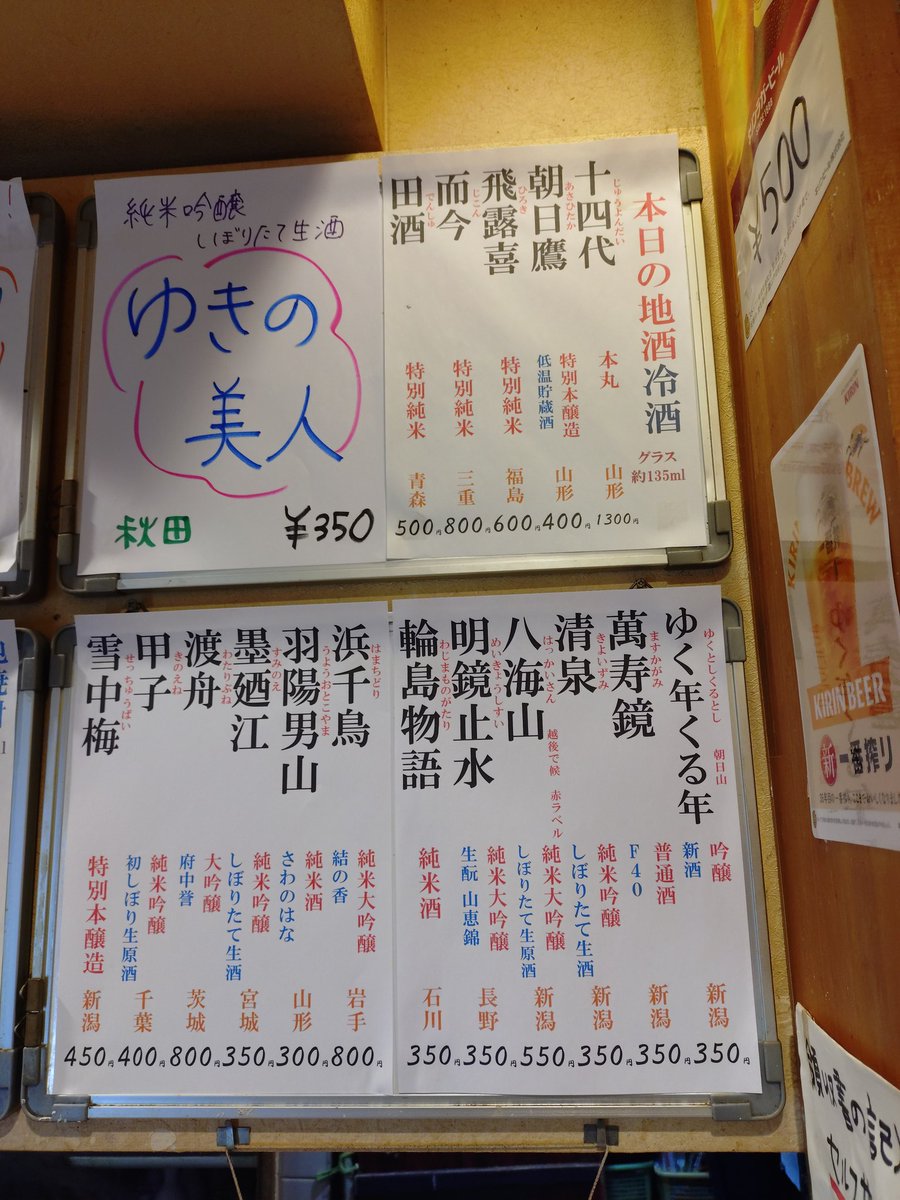 本日の地酒冷酒
グラス
約135ml
十四代
じゅうよんだい
本丸
山形
1300円
朝日鷹
あさひたか
特別本醸造
低温貯蔵酒
山形
400円
飛露喜
ひろき
特別純米
福島
600円
而今
じこん
特別純米
三重
800円
田酒
でんしゅ
特別純米
青森
500円
純米吟醸
しぼりたて生酒
ゆきの
美人
秋田
¥350
ゆく年くる年
ゆくとしくるとし
朝日山
吟醸
新酒
新潟
350円
萬寿鏡
ますかがみ
普通酒
F40
新潟
350円
清泉
きよいずみ
純米吟醸
しぼりたて生酒
新潟
350円
八海山
はっかいさん
越後で候 赤ラベル
純米大吟醸
しぼりたて生原酒
新潟
550円
明鏡止水
めいきょうしすい
純米大吟醸
生酛 山恵錦
長野
350円
輪島物語
わじまものがたり
純米酒
石川
350円
浜千鳥
はまちどり
純米大吟醸
結の香
岩手
800円
羽陽男山
うようおとこやま
純米酒
さわのはな
山形
300円
墨廼江
すみのえ
純米吟醸
しぼりたて生酒
宮城
350円
渡舟
わたりぶね
大吟醸
府中誉
茨城
800円
甲子
きのえね
純米吟醸
初しぼり生原酒
千葉
400円
雪中梅
せっちゅうばい
特別本醸造
新潟
450円
¥500
KIRIN
BREW
KIRIN BEER
新 一番搾り
領収書の記入
セルフサ